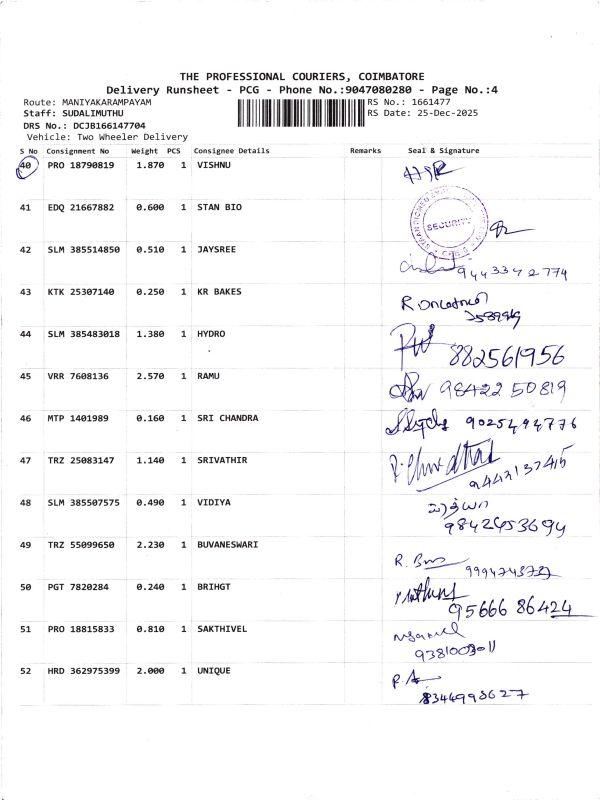 THE PROFESSIONAL COURIERS, COIMBATORE
Delivery Runsheet - PCG - Phone No.:9047080280 - Page No.:4
Route: MANIYAKARAMPAYAM RS No.: 1661477
Staff: SUDALIMUTHU RS Date: 25-Dec-2025
DRS No.: DCJB166147704
Vehicle: Two Wheeler Delivery
S No Consignment No Weight PCS Consignee Details Remarks Seal & Signature
40 PRO 18790819 1.870 1 VISHNU
41 EDQ 21667882 0.600 1 STAN BIO
SECURITY
42 SLM 385514850 0.510 1 JAYSREE
9443342774
43 KTK 25307140 0.250 1 KR BAKES
44 SLM 385483018 1.380 1 HYDRO
882561956
45 VRR 7608136 2.570 1 RAMU
98422 50819
46 MTP 1401989 0.160 1 SRI CHANDRA
9025494776
47 TRZ 25083147 1.140 1 SRIVATHIR
9443137415
48 SLM 385507575 0.490 1 VIDIYA
9842453694
49 TRZ 55099650 2.230 1 BUVANESWARI
50 PGT 7820284 0.240 1 BRIHGT
95666 86424
51 PRO 18815833 0.810 1 SAKTHIVEL
52 HRD 362975399 2.000 1 UNIQUE
8344998627